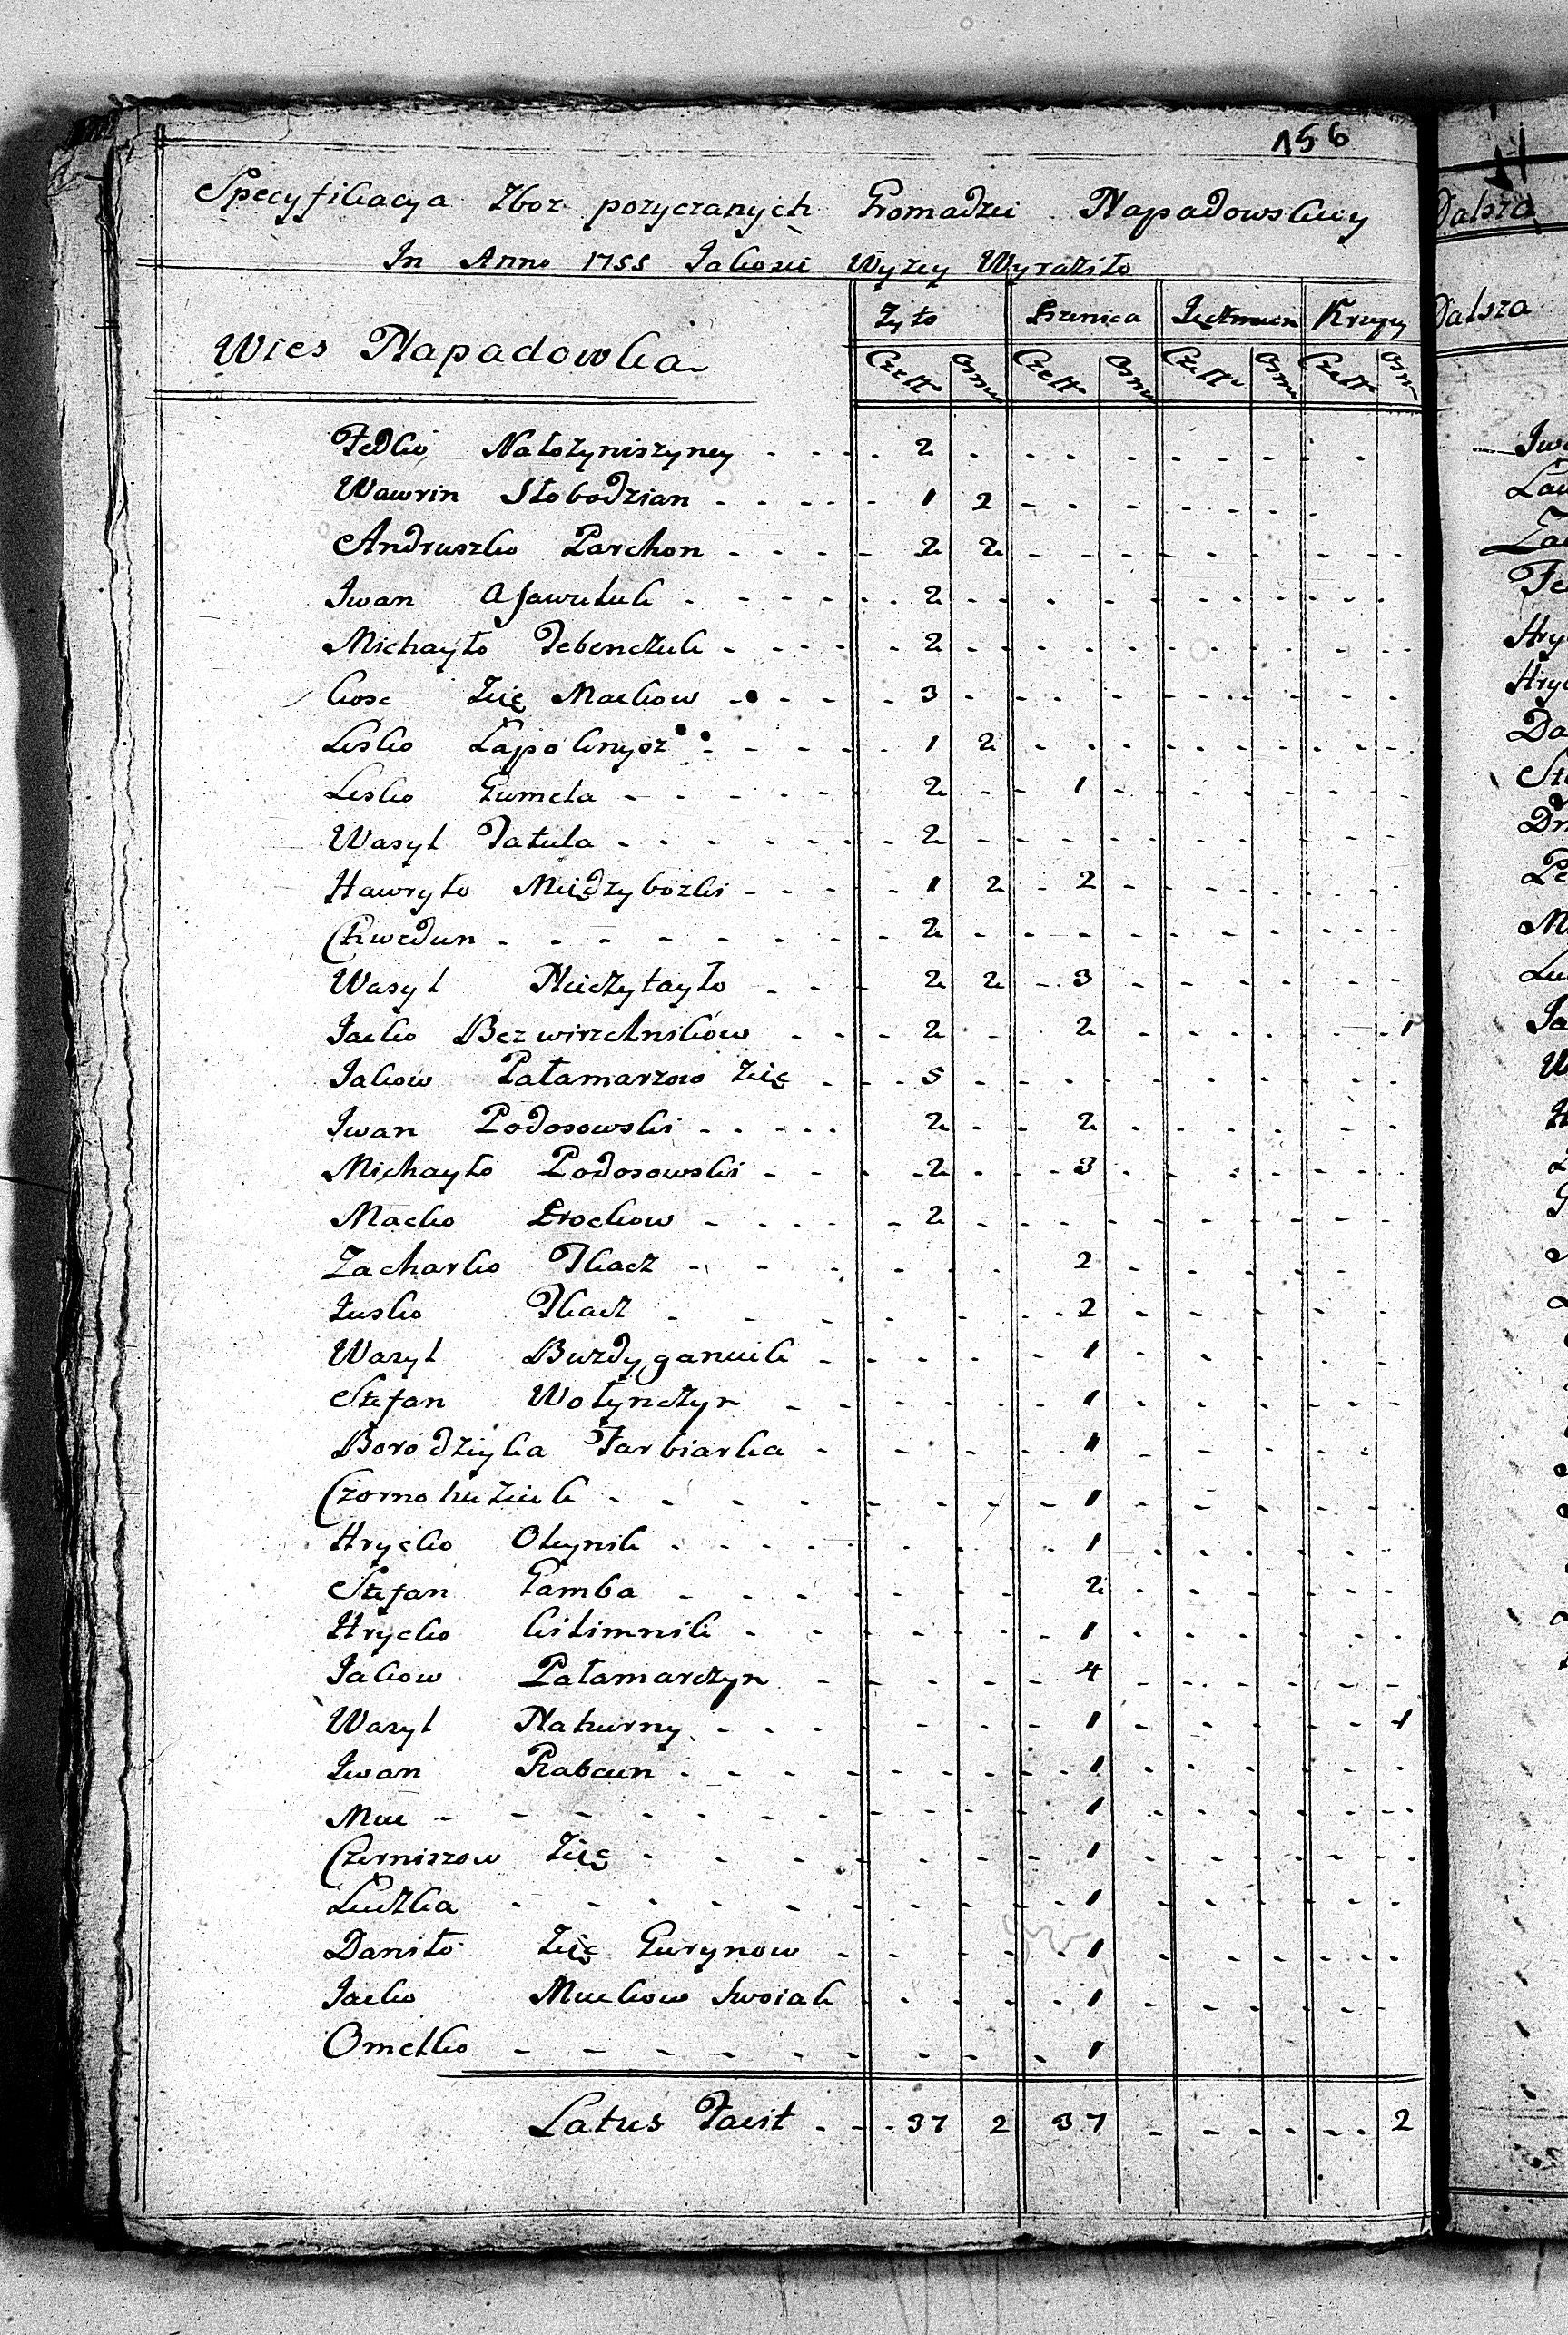 156
Specyfikacya Zboz pozyczanych Gromadzie Napadowskiey
In Anno 1755 Jakosie Wyzey Wyraziło
Wies Napadowka
Zyto Pszenica Jęczmien Krupy
Czett Osmu Czett Osmu Czett Osmu Czett Osm
Fedko Nałozyniszyney 2
Wawrin Słobodzian 1 2
Andruszko Parchon 2 2
Iwan 2
Michayło Tebenczuk 2
kosc Zię Mackow 3
Lesko 1 2
Lesko Gumela 2 1
Wasyl Tatula 2
Hawryło Międzybozki 1 2 2
Chwedun 2
Wasyl Nieczytayło 2 2 3
Jacko Bezwirzchnikow 2 2 1
Jakow Pałamarzow Zię 5
Iwan Podosowski 2 2
Michayło Podosowski 2 3
Macko Prockow 2
Zacharko Tkacz 2
Jusko Tkacz 2
Wasyl Burdyganiuik 1
Stefan Wołynczyn 1
Borodziyka Farbiarka 1
Czornohuziuk 1
Hrycko Oleynik 1
Stefan Gamba 2
Hrycko kilimnik 1
Jakow Pałamarczyn 4
Wasyl Nahurny 1 1
Iwan Rabcun 1
1
Czerniszow Zię 1
Luczka 1
Daniło Zię Gurynow 1
Jacko Muckow Swoiak 1
Omelko 1
Latus Facit 37 2 37 2
Dalsza
Dalsza